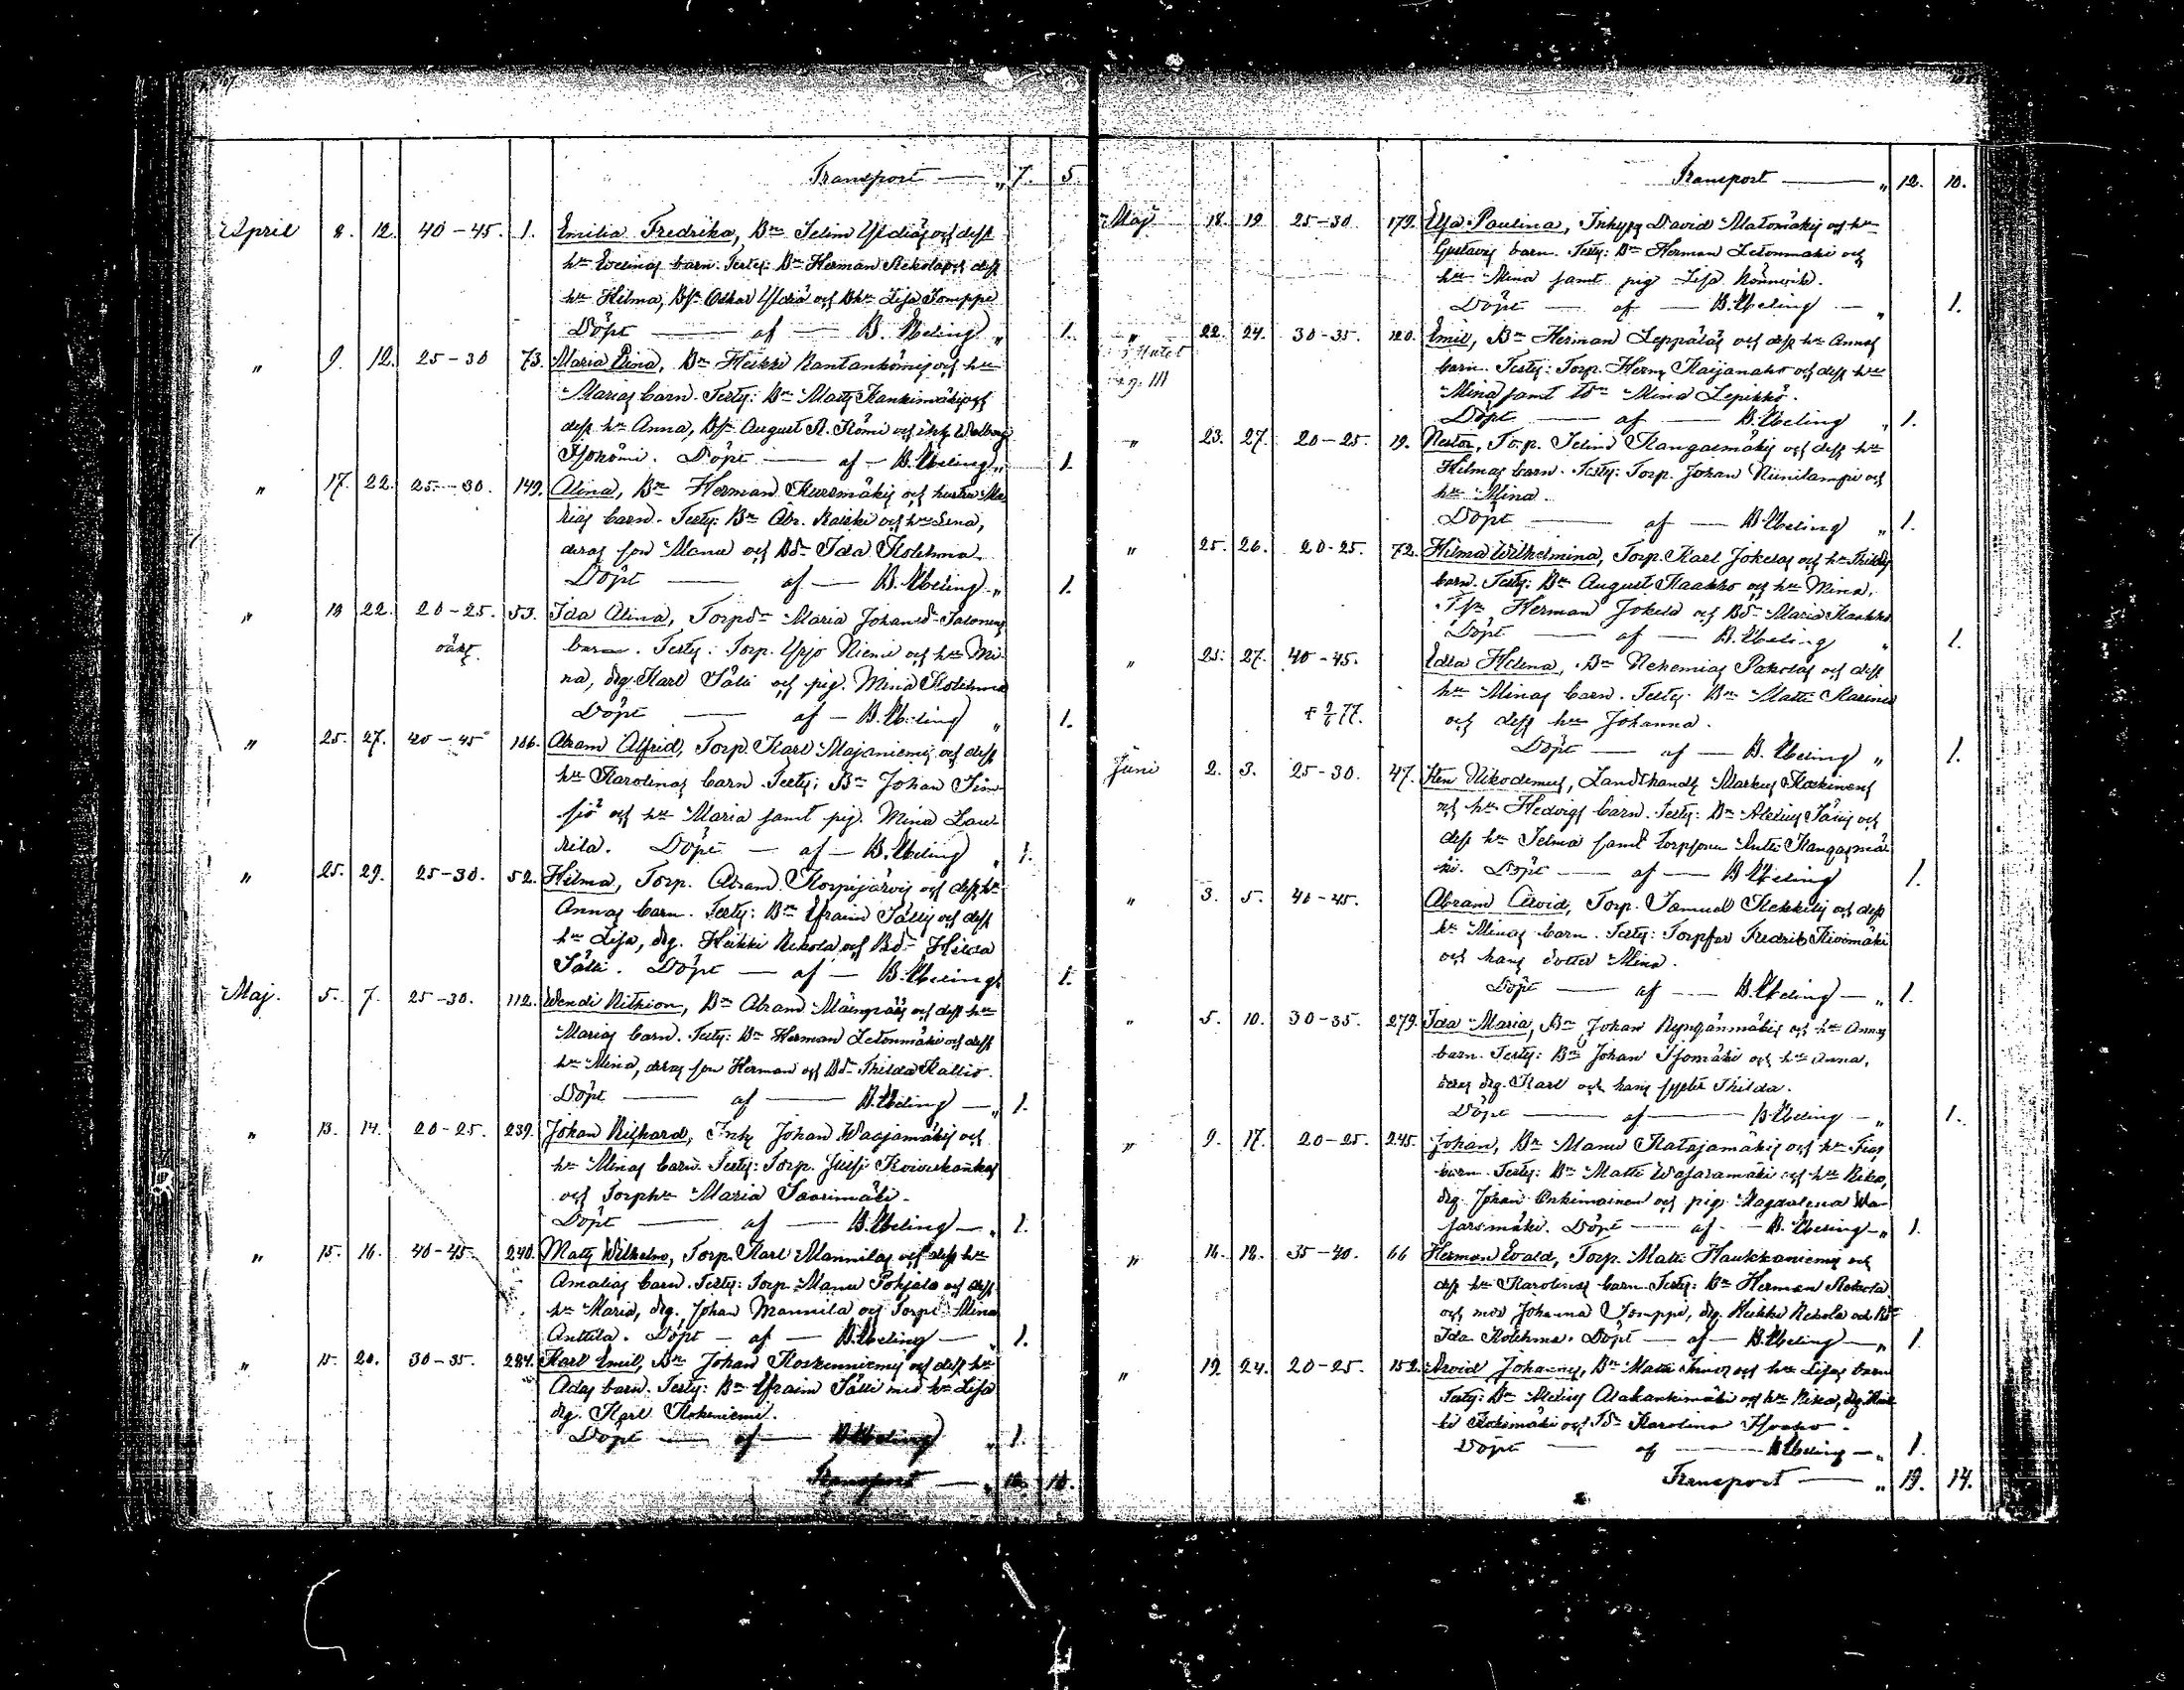 Transport — „ 7. 5.
April 8. 12. 40–45. 1. Emilia Fredrika, Bn Selim Yldiäs och dess
hu Evelinas barn. Test: Bn Herman Rekola och dess
hu Hilma, Bs Oskar Yldiä och Bhu Lisa Tomppi
Döpt — af — B. Ubeling „ 1.
„ 9. 12. 25–30 73. Maria Elina, Bn Heikki Rantankömis och hu
Marias barn. Test: Bn Matts Kankimäki och
dess hu Anna, Bs August A. Kömi och Walborg
Isokömi. Döpt — af — B. Ubeling „ 1.
„ 17. 22. 25–30. 149. Alina, Bn Herman Kursmäkis och hustru Ma-
rias barn. Test: Bn Abr. Raiski och hu Lena,
deras son Manu och Bd Ida Kolehma.
Döpt — af — B. Ubeling „ 1.
„ 18 22. 20–25. 53. Ida Alina, Torpd Maria Johansd Salonens
oäkt. barn. Test: Torp. Yrjö Niemi och hu Mi-
na, drg. Karl Sälli och pig. Mina Kolehma
Döpt — af — B. Ubeling „ 1.
„ 25. 27. 40–45 166. Abram Alfrid, Torp. Karl Majaniemis och dess
hu Karolinas barn. Test: Bn Johan Sim-
siö och hu Maria samt pig. Mina Lau-
rila. Döpt — af — B. Ubeling „ 1.
„ 25. 29. 25–30. 52. Hilma, Torp. Abram Korpijärvis och dess hu
Annas barn. Test: Bn Efraim Sällis och dess
hu Lisa, drg. Heikki Rekola och Bd Hilda
Sälli. Döpt — af — B. Ubeling 1.
Maj. 5. 7. 25–30. 112. Wendi Riikion, Bn Abram Mäenpääs och dess hu
Marias barn. Test: Bn Herman Letonmäki och dess
hu Mina, deras son Herman och Bd Thilda Kallio.
Döpt — af — B. Ubeling — „ 1.
„ 13. 14. 20–25. 239. Johan Richard, Inh Johan Waajamäkis och
hu Minas barn. Test: Torp. Juho Koivukankas
och Torphu Maria Saarimäki.
Döpt — af — B. Ubeling — „ 1.
„ 15. 16. 40–45. 240. Matts Wilhelm, Torp. Karl Mannilas och dess hu
Amalias barn. Test: Torp. Manu Pohjala och dess
hu Maria, drg. Johan Mannila och Torpd Mina
Anttila. Döpt — af — B. Ubeling — „ 1.
„ 15. 20. 30–35. 284. Karl Emil, Bn Johan Koskenniemis och dess hu
Adas barn. Test: Bn Efraim Sälli med hu Lisa
drg. Karl Koskeniemi.
Döpt — af — B. Ubeling „ 1.
Transport — „ 12. 10.
Transport — „ 12. 10.
Maj 18. 19. 25–30 179. Elsa Paulina, Inhysg David Matomäkis och hu
Gustavas barn. Test: Bn Herman Letonmäki och
hu Mina samt pig Lisa
Döpt — af — B. Ubeling — „ 1.
„ 22. 24. 30–35. 120. Emil, Bn Herman Leppäläs och dess hu Annas
barn. Test: Torp. Herm Kaijanaho och dess hu
Mina samt Mina Lepikkö.
Döpt — af — B. Ubeling „ 1.
„ 23. 27. 20–25. 19. Nestor, Torp. Selim Kangasmäkis och dess hu
Hilmas barn. Test: Torp. Johan Niinilampi och
hu Mina.
Döpt — af — B. Ubeling „ 1.
„ 25. 26. 20–25. 72. Hilma Wilhelmina, Torp. Karl Jokelas och hu Thildas
barn. Test: Bn August Kaakko och hu Mina,
Herman Jokela och Bd Maria Kaakko
Döpt — af — B. Ubeling „ 1.
„ 25. 27. 40–45. Edla Helena, Bn Nehemias Pakolas och dess
hu Minas barn. Test: Bn Matti Karinen
och dess hu Johanna.
Döpt — af — B. Ubeling „ 1.
Juni 2. 3. 25–30. 47. Sten Nikodemus, Landthandl Markus Koskinens
och hu Hedvigs barn. Test: Bn Alexius Säris och
dess hu Selma samt torpsonen Antti Kangasmä-
ki. Döpt — af — B. Ubeling 1.
„ 3. 5. 40–45. Abram Arvid, Torp. Samuel Kekkilis och dess
hu Minas barn. Test: Torpfar Fredrik Kivimäki
och hans dotter Mina.
Döpt — af — B. Ubeling — „ 1.
„ 5. 10. 30–35. 279. Ida Maria, Bn Johan Ryngänmäkis och hu Annas
barn. Test: Bn Johan Isomäki och hu Anna,
deras drg. Karl och hans syster Thilda.
Döpt — af — B. Ubeling — „ 1.
„ 9. 17. 20–25. 245. Johan, Bn Manu Katajamäkis och hu Fias
barn. Test: Bn Matti Wasaramäki och hu Rika,
drg. Johan Onkimainen och pig. Magdalena Wa-
saramäki. Döpt — af — B. Ubeling — „ 1.
„ 16. 18. 35–40. 66 Herman Evald, Torp. Matti Haukkaniemis och
dess hu Karolinas barn. Test: Bn Herman Rekola
och mor Johanna Tomppi, drg. Heikki Rekola och Bd
Ida Kolehma. Döpt — af — B. Ubeling — „ 1.
„ 19. 24. 20–25. 152. Arvid Johannes, Bn Matti och hu Lisas barn
Test: Bn Alexius Alakankimäki och hu Rika, drg. Heik-
ki Kokemäki och Karolina Isoaho.
Döpt — af — B. Ubeling — „ 1.
Transport — „ 19. 14.